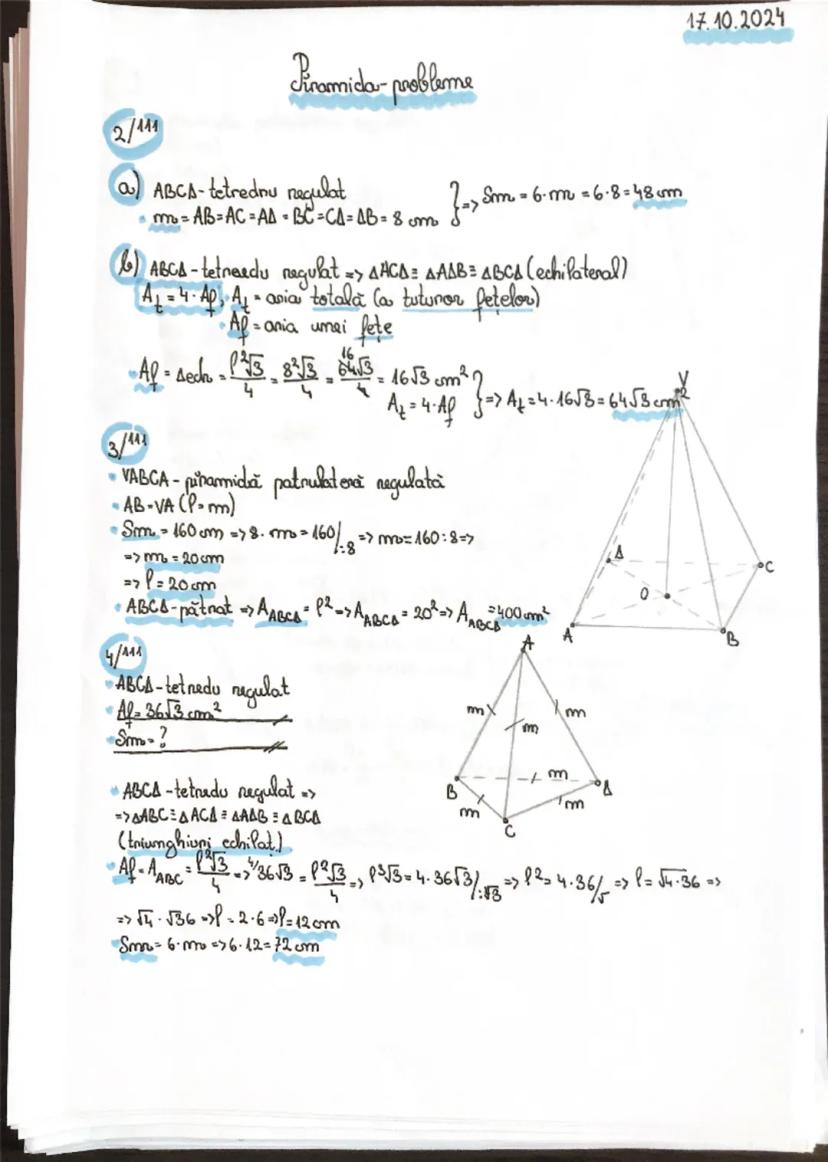 17.10.2024
Piramida-probleme
2/111
a) ABCΔ-tetrednu regulat
m = AB=AC=AΔ=BC=CΔ=ΔB = 8 cm } => Sm = 6·m = 6·8 = 48 cm
b) ABCΔ-tetraedu regulat => ΔACΔ ≡ ΔAΔB ≡ ΔBCΔ (echilateral)
At = 4·Af, At = aria totală (a tuturor fețelor)
Af = aria unei fețe
Af = Δech = l²√3/4 = 8²√3/4 = 64√3/4 16 = 16√3 cm²
At = 4·Af } => At = 4·16√3 = 64√3 cm²
3/111
VABCΔ - piramidă patrulateră regulată
AB=VA (l=m)
Sm = 160 cm => 8·m = 160/:8 => m = 160:8 =>
=> m = 20 cm
=> l = 20 cm
ABCΔ-pătrat => AABCΔ = l² => AABCΔ = 20² => AABCΔ = 400 cm²
V
Δ
C
O
A
B
4/111
ABCΔ-tetredu regulat
Af = 36√3 cm²
Sm = ?
A
m
m
m
m
B
Δ
m
m
C
ABCΔ-tetredu regulat =>
=> ΔABC ≡ ΔACΔ ≡ ΔAΔB ≡ ΔBCΔ
(triunghiuri echilat.)
Af = AABC = l²√3/4 => 4/36√3 = l²√3/4 => l²√3 = 4·36√3/:√3 => l² = 4·36/√ => l = √4·36 =>
=> √4·√36 => l = 2·6 => l = 12 cm
Sm = 6·m => 6·12 = 72 cm